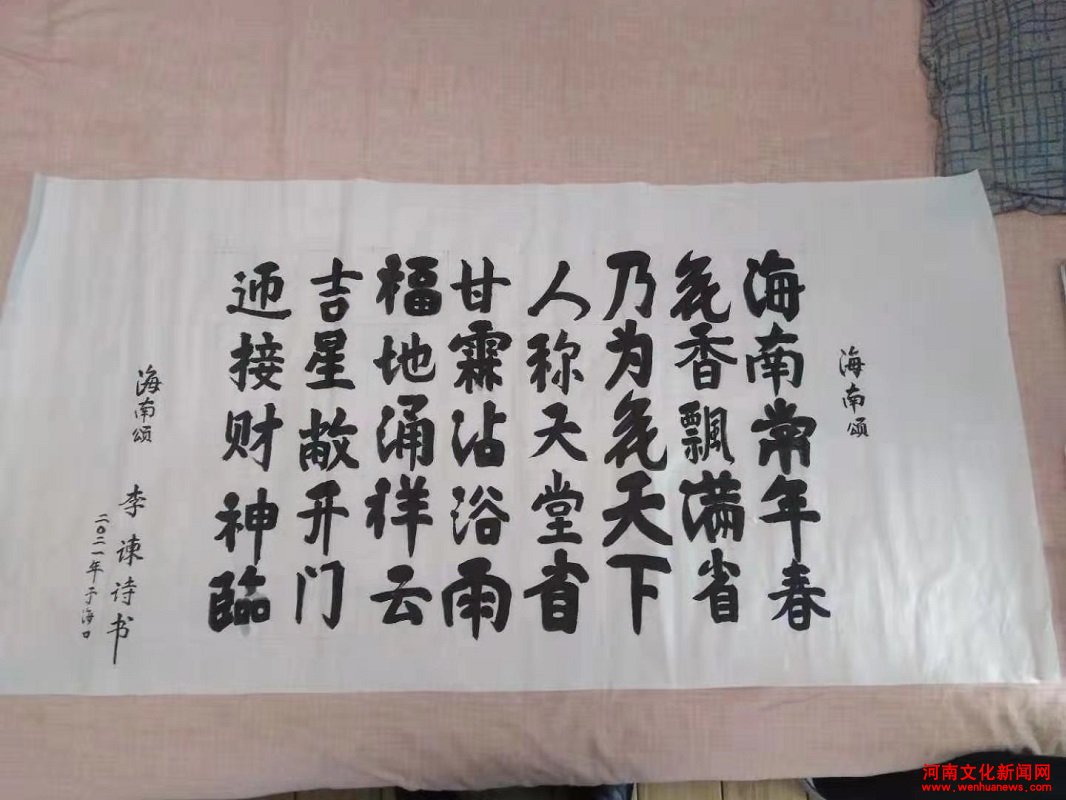 海南颂
海南常年春
花香飘满省
乃为花天下
人称天堂省
甘霖沾浴雨
福地涌祥云
吉星敞开门
迎接财神臨
海南颂
李谏诗书
二〇二一年于海口
河南文化新闻网
www.wenhuanews.com